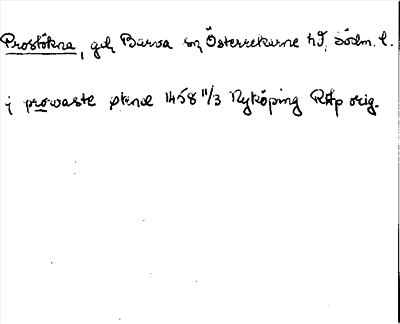 Prostökna, gd, Bärva sn, Österrekarne hd, Södm. l.
j prowaste økene 1458 11/3 Nyköping RAp orig.